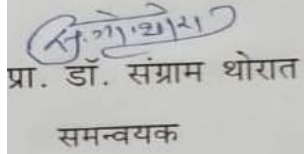 प्रा. डॉ. संग्राम थोरात
समन्वयक